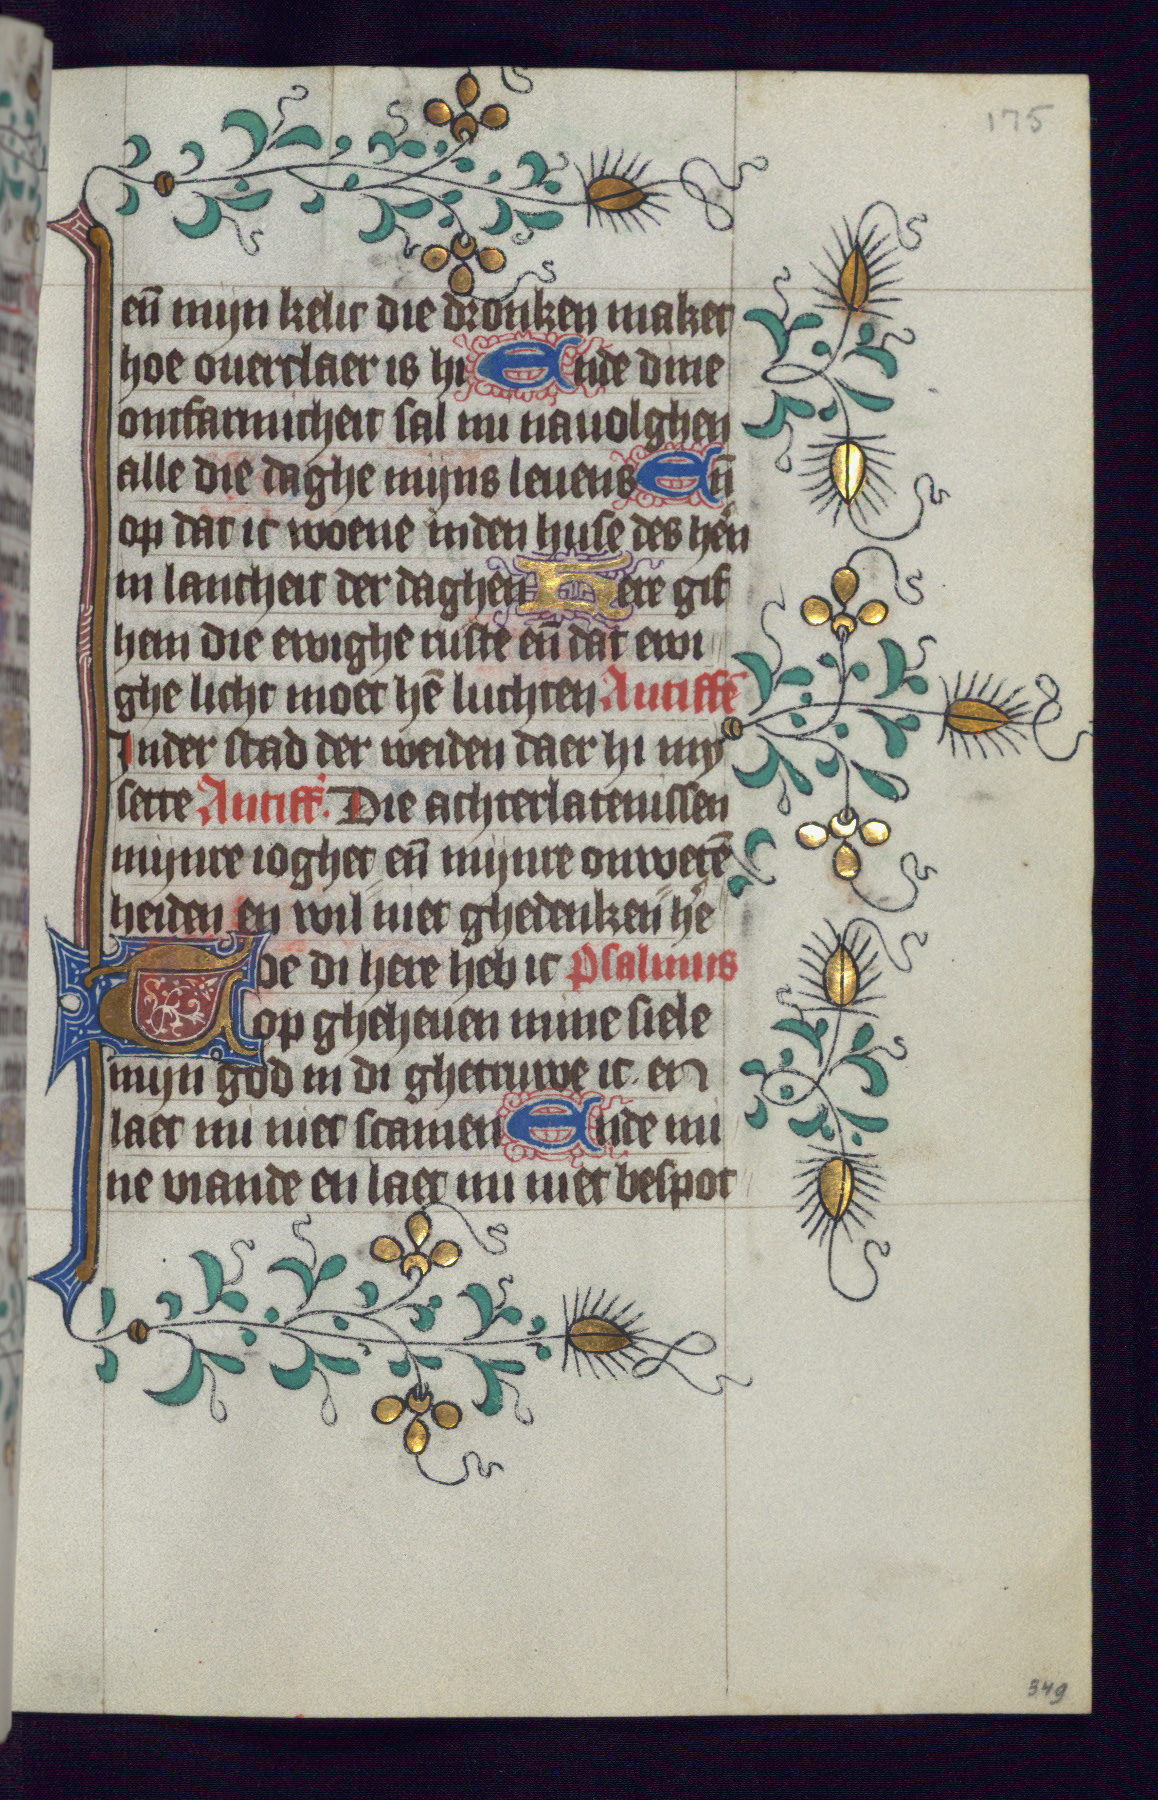 175
en̄ mijn kelic die dronken maket
hoe ouerclaer is hi Ende dine
ontfarmicheit sal mi nauolghen
alle die daghe mijns leuens En̄
op dat ic woene inden huse des hēn
in lancheit der daghen Here gif
hem die ewighe ruste en̄ dat ewi
ghe licht moet hē luchten Antiffē
Inder stad der weiden daer hi mij
sette Antiff. Die achterlatenissen
mijnre ioghet en̄ mijnre onwetē
heiden en wil niet ghedenken hē
Toe di here heb ic Psalmus
op gheheuen mine siele
mijn god in di ghetruwe ic en
laet mi niet scamen Ende mi
ne viande en laet mi niet bespot
349